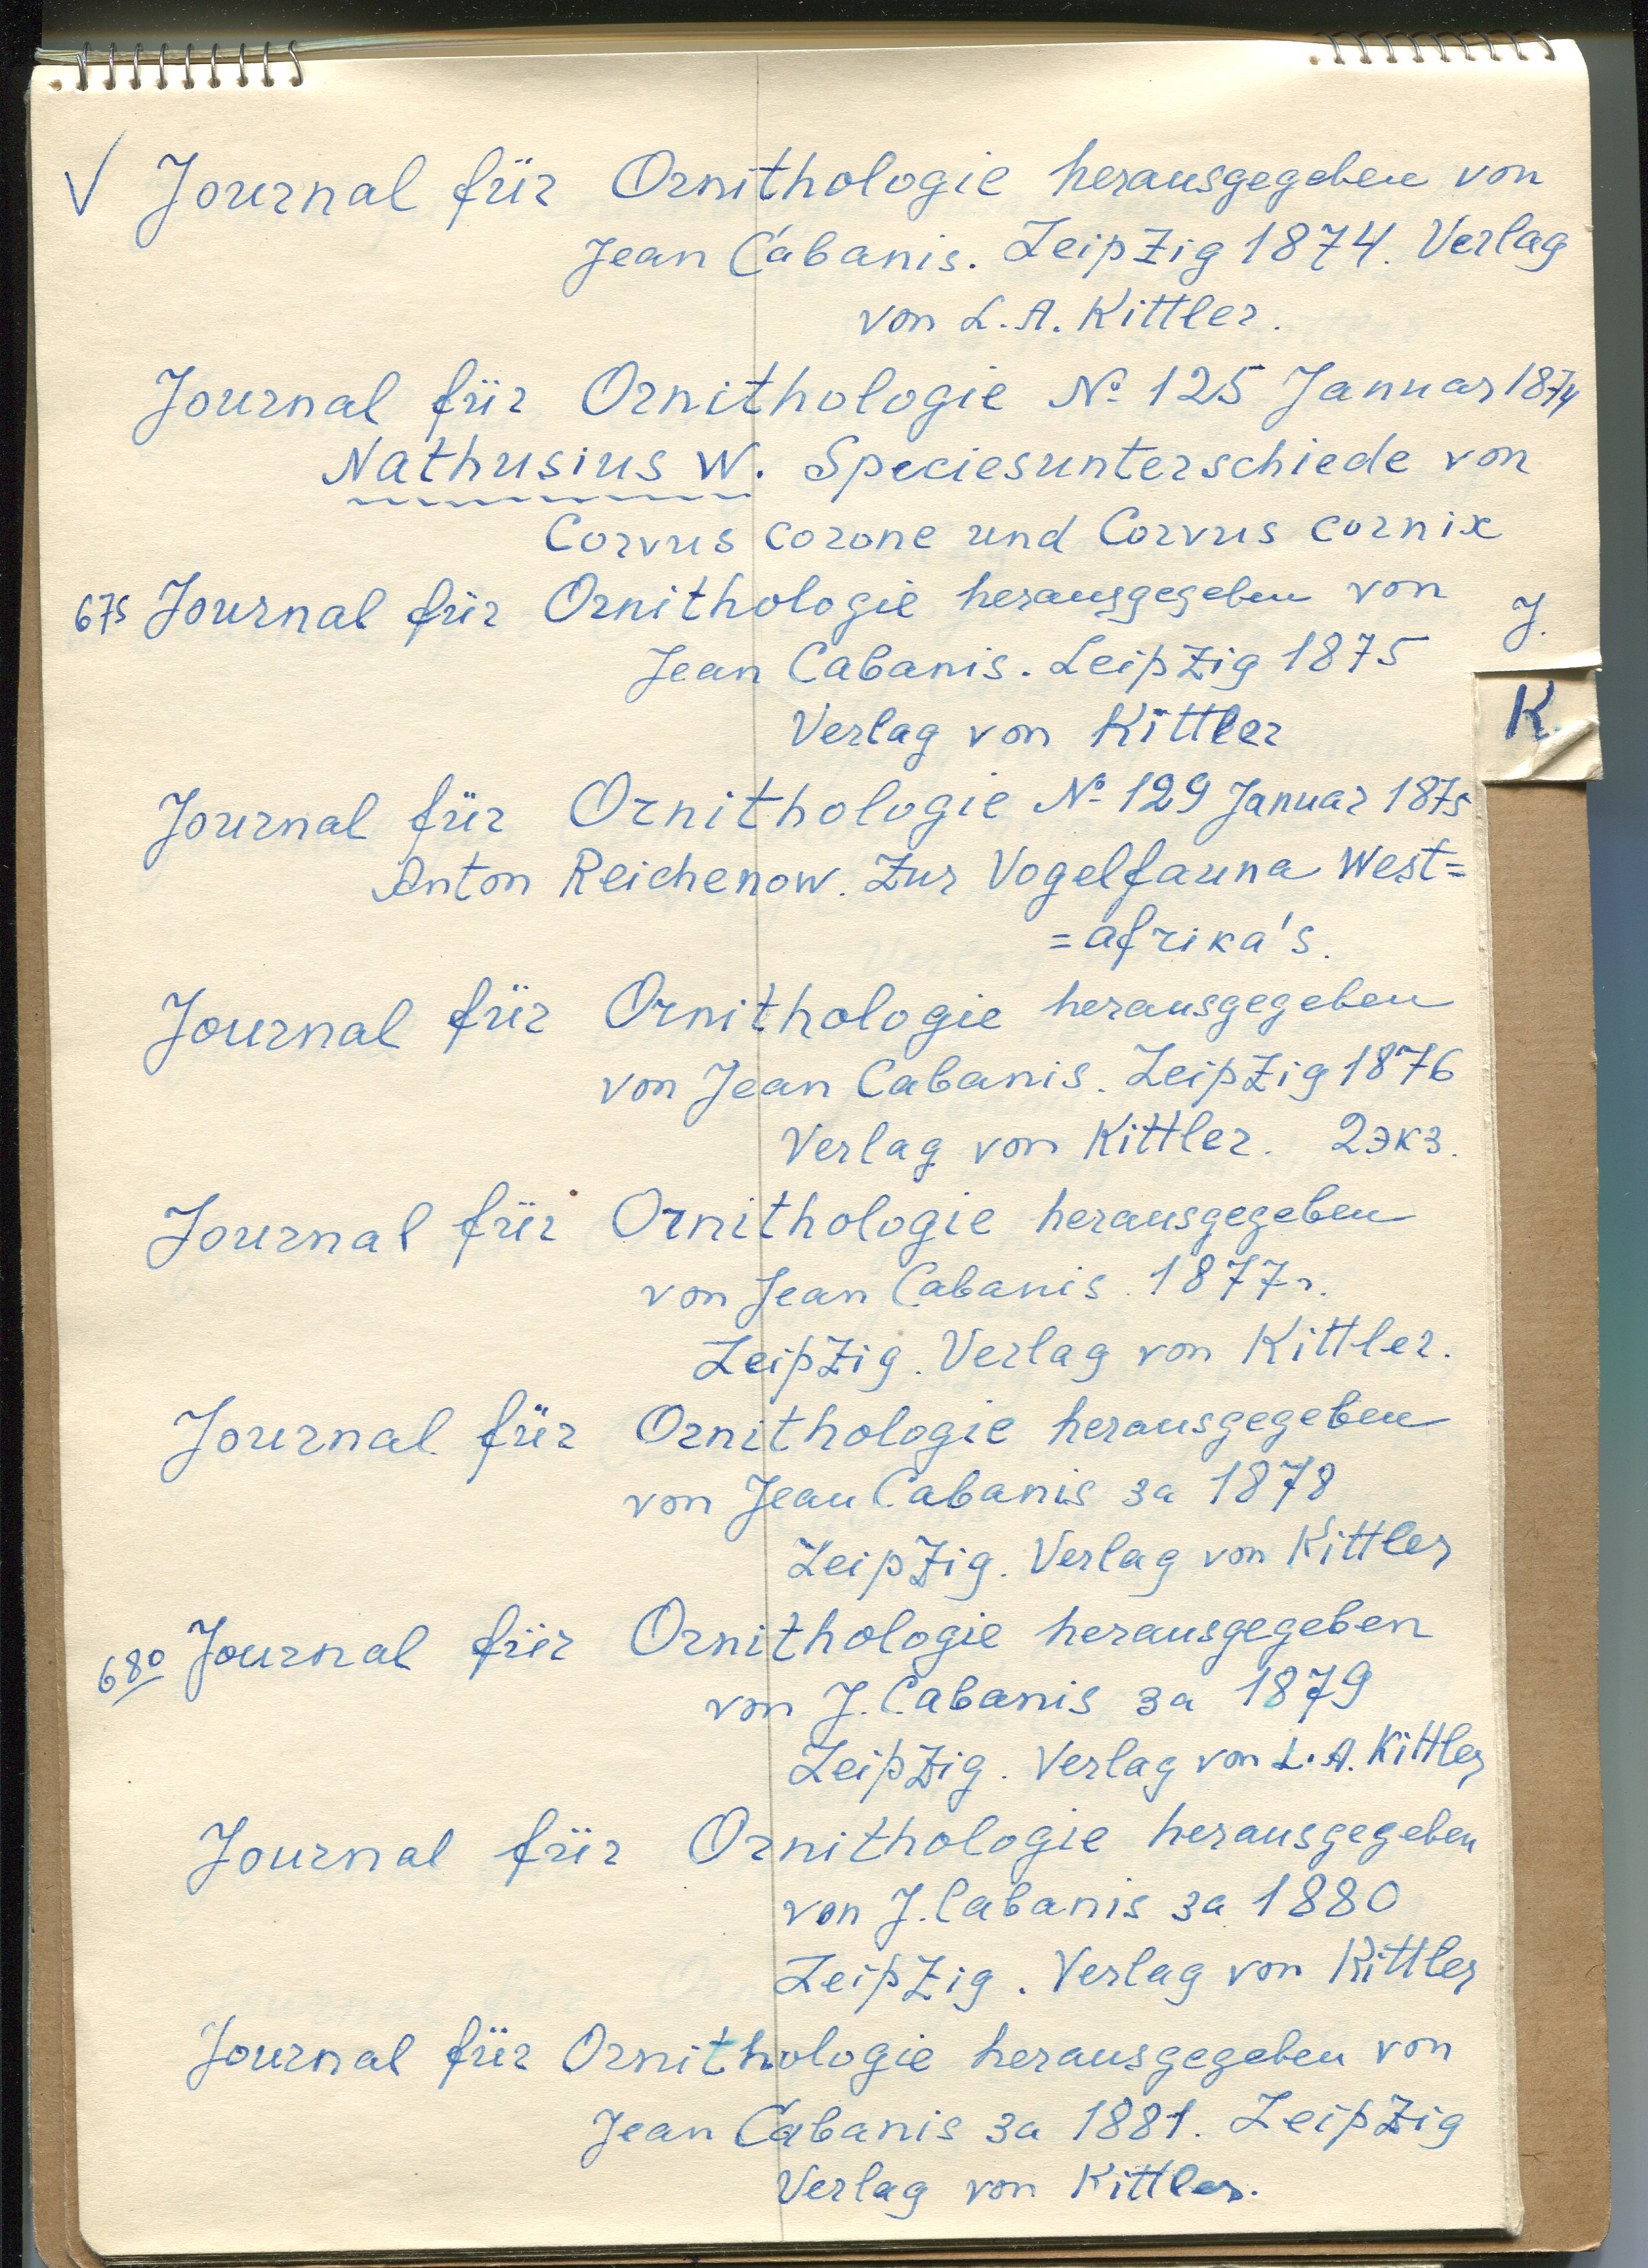 √ Journal für Ornithologie herausgegeben von
Jean Cabanis. Leipzig 1874. Verlag
von L. A. Kittler.
Journal für Ornithologie № 125 Januar 1874
Nathusius W. Speciesunterschiede von
Corvus corone und Corvus cornix
675 Journal für Ornithologie herausgegeben von
J.
Jean Cabanis. Leipzig 1875
K.
Verlag von Kittler
Journal für Ornithologie № 129 Januar 1875
Anton Reichenow. Zur Vogelfauna West=
=afrika's.
Journal für Ornithologie herausgegeben
von Jean Cabanis. Leipzig 1876
Verlag von Kittler. 2 экз.
Journal für Ornithologie herausgegeben
von Jean Cabanis. 1877 г.
Leipzig. Verlag von Kittler.
Journal für Ornithologie herausgegeben
von Jean Cabanis за 1878
Leipzig. Verlag von Kittler
680 Journal für Ornithologie herausgegeben
von J. Cabanis за 1879
Leipzig. Verlag von L. A. Kittler
Journal für Ornithologie herausgegeben
von J. Cabanis за 1880
Leipzig. Verlag von Kittler
Journal für Ornithologie herausgegeben von
Jean Cabanis за 1881. Leipzig
Verlag von Kittler.